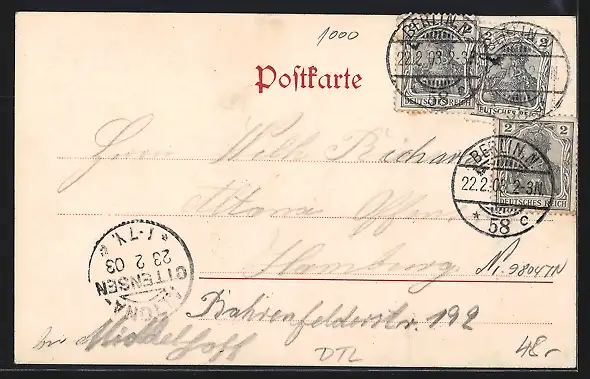 1000
BERLIN. N.
22.2.03.2-3N.
58 c
2
DEUTSCHES REICH
Postkarte
BERLIN. N.
22.2.03.2-3N.
* 58 c
2 2
DEUTSCHES REICH
Herrn Wilh. Richar
Altona Otten
Hamburg
N. 98047N
Bahrenfelderstr. 192
bei Middelhoff
ALTONA OTTENSEN
23 2 03
* 1-7 V. *
DTL
48.-